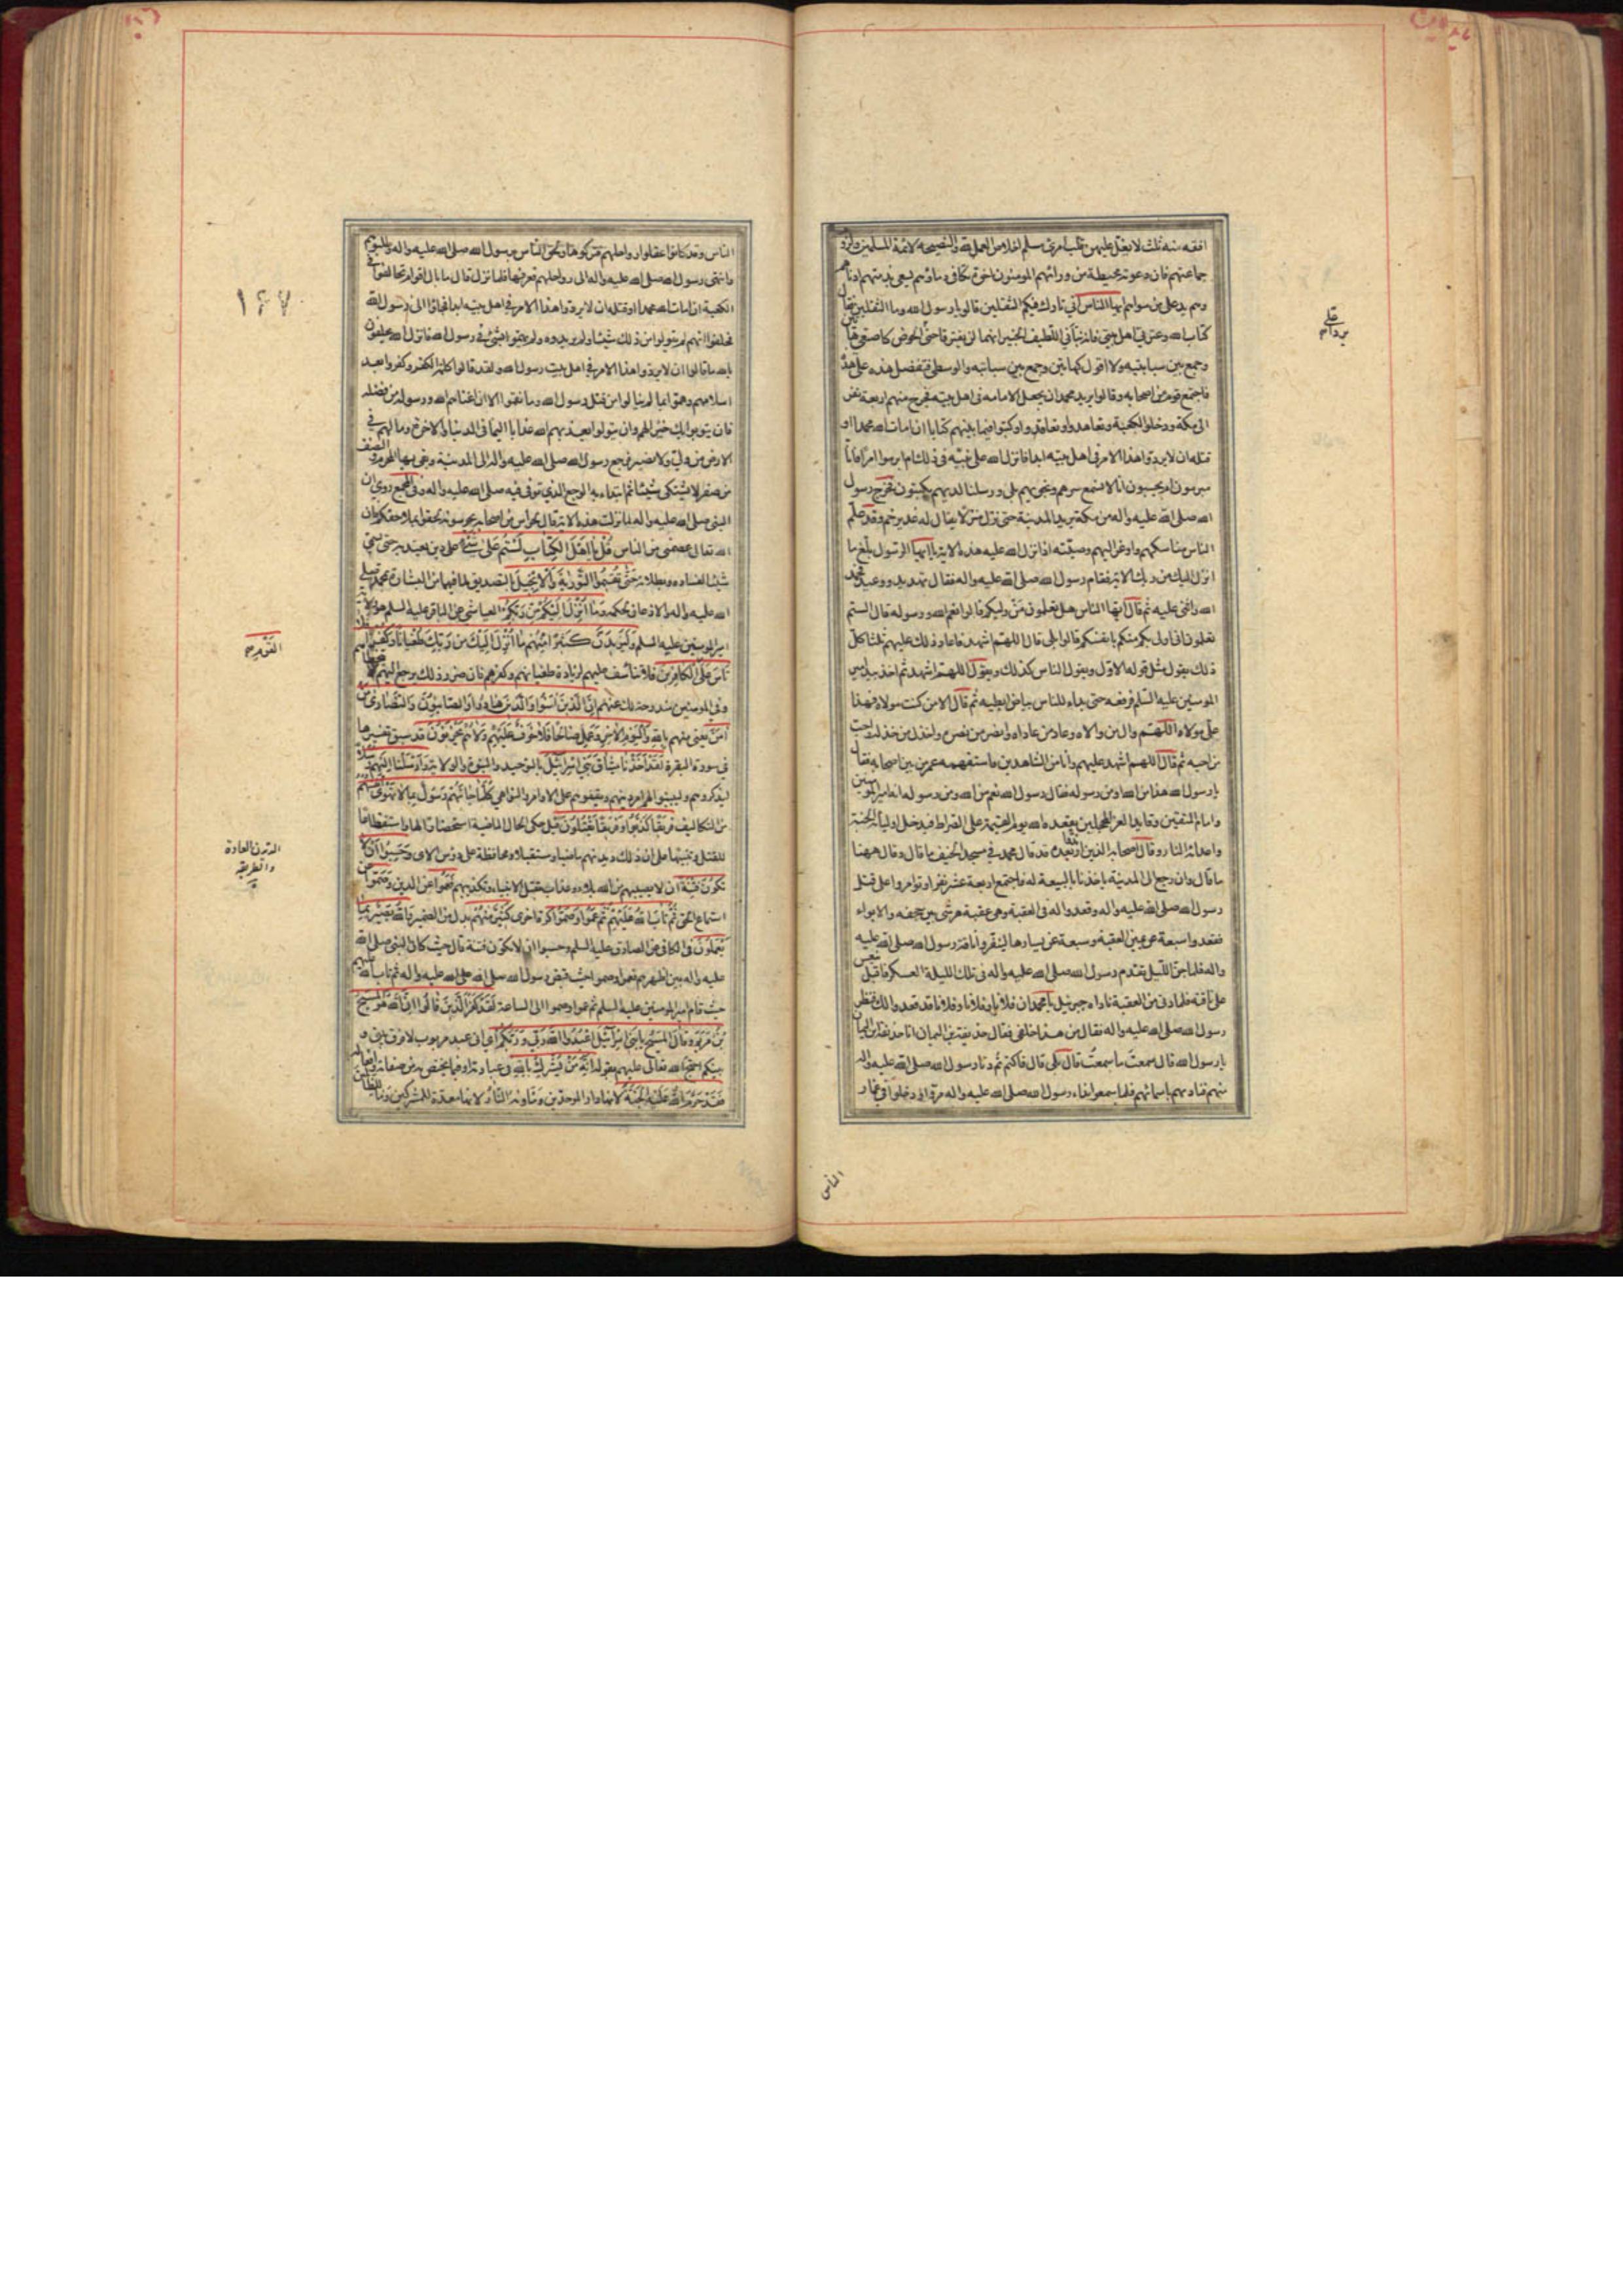 افقه منه ثلث لا يغل عليهن قلب امرئ مسلم اخلاص العمل لله والنصيحة لائمة المسلمين ولزوم
جماعتهم فان دعوتهم محيطة من ورائهم المؤمنون اخوة تتكافى دماؤهم يسعى بذمتهم ادناهم
وهم يد على من سواهم ايها الناس اني تارك فيكم الثقلين قالوا يا رسول الله وما الثقلين فقال
كتاب الله وعترتي اهل بيتي فانه نبأني اللطيف الخبير انهما لن يفترقا حتى الحوض كاصبعي هاتين
وجمع بين سبابتيه ولا اقول كهاتين وجمع بين سبابته والوسطى فتفضل هذه على هذه
فاجتمع قوم من اصحابه وقالوا يريد محمد ان يجعل الامامة في اهل بيته فخرج منهم اربعة نفر
الى مكة ودخلوا الكعبة وتعاهدوا وتعاقدوا وكتبوا فيما بينهم كتابا ان امات الله محمدا او
قتله ان لا يردوا هذا الامر في اهل بيته ابدا فانزل الله على نبيه في ذلك ام ابرموا امرا فانا
مبرمون ام يحسبون انا لا نسمع سرهم ونجويهم بلى ورسلنا لديهم يكتبون فخرج رسول
الله صلى الله عليه واله من مكة يريد المدينة حتى نزل منزلا يقال له غدير خم وقد علم
الناس مناسكهم واوعز اليهم وصيته اذ انزل الله عليه هذه الاية يا ايها الرسول بلغ ما
انزل اليك من ربك الاية فقام رسول الله صلى الله عليه واله فقال تهديد ووعيد فحمد
الله واثنى عليه ثم قال ايها الناس هل تعلمون من وليكم قالوا نعم الله ورسوله قال الستم
تعلمون اني اولى بكم منكم بانفسكم قالوا بلى قال اللهم اشهد فاعاد ذلك عليهم ثلثا كل
ذلك يقول مثل قوله الاول ويقول الناس كذلك ويقول اللهم اشهد ثم اخذ بيد امير
المومنين عليه السلم فرفعه حتى بداء للناس بياض ابطيه ثم قال الا من كنت مولاه فهذا
على مولاه اللهم وال من والاه وعاد من عاداه وانصر من نصره واخذل من خذله واحب
من احبه ثم قال اللهم اشهد عليهم وانا من الشاهدين فاستفهمه عمر من بين اصحابه فقال
يا رسول الله هذا من الله او من رسوله فقال رسول الله نعم من الله ومن رسوله انه امير المومنين
وامام المتقين وقايد الغر المحجلين يقعده الله يوم القيمة على الصراط فيدخل اولياءه الجنة
واعدائه النار وقال اصحابه الذين ارتدوا بعده قد قال محمد في مسجد الخيف ما قال وقال ههنا
ما قال وان رجع الى المدينة ياخذنا بالبيعة له فاجتمع اربعة عشر نفرا وتوامروا على قتل
رسول الله صلى الله عليه واله وقعدوا له في العقبة وهي عقبة هرشى بين جحفه والابواء
فقعدوا سبعة عن يمين العقبة وسبعة عن يسارها لينفروا ناقة رسول الله صلى الله عليه
واله فلما جن الليل تقدم رسول الله صلى الله عليه واله في تلك الليلة العسكر فاقبل ينعس
على ناقته فلما دنى من العقبة ناداه جبرئيل يا محمد ان فلانا وفلانا وفلانا قد قعدوا لك فنظر
رسول الله صلى الله عليه واله فقال من هذا خلفي فقال حذيفة بن اليمان انا حذيفة بن اليمان
يا رسول الله قال سمعت ما سمعت قال بلى قال فاكتم ثم دنا رسول الله صلى الله عليه واله
منهم فناداهم باسمائهم فلما سمعوا نداء رسول الله صلى الله عليه واله مروا ودخلوا في غمار
الناس
الناس وقد كانوا عقلوا رواحلهم فتركوها ولحق الناس برسول الله صلى الله عليه واله وطلبوهم
وانتهى رسول الله صلى الله عليه واله الى رواحلهم فعرفها فلما نزل قال ما بال اقوام تحالفوا في
الكعبة ان امات الله محمدا او قتله ان لا يردوا هذا الامر في اهل بيته ابدا فجاؤا الى رسول الله
فحلفوا انهم لم يقولوا من ذلك شيئا ولم يريدوه ولم يهموا بشئ في رسول الله فانزل الله يحلفون
بالله ما قالوا ان لا يردوا هذا الامر في اهل بيت رسول الله ولقد قالوا كلمة الكفر وكفروا بعد
اسلامهم وهموا بما لم ينالوا من قتل رسول الله وما نقموا الا ان اغناهم الله ورسوله من فضله
فان يتوبوا يك خيرا لهم وان يتولوا يعذبهم الله عذابا اليما في الدنيا والاخرة وما لهم في
الارض من ولي ولا نصير فرجع رسول الله صلى الله عليه واله الى المدينة وبقي بها المحرم والنصف
من صفر لا يشتكى شيئا ثم ابتداء به الوجع الذي توفى فيه صلى الله عليه واله وفي المجمع روي ان
النبي صلى الله عليه واله لما نزلت هذه الاية قال لحراس من اصحابه يحرسونه الحقوا بملاحقكم فان
الله تعالى عصمني من الناس قل يا اهل الكتاب لستم على شئ على دين يعتد به حتى يسمى
شيئا لفساده وبطلانه حتى تقيموا التورية والانجيل بالتصديق لما فيهما من البشارة بمحمد صلى
الله عليه واله والاذعان لحكمه وما انزل اليكم من ربكم العياشي عن الباقر عليه السلم هو ولاية
امير المومنين عليه السلم وليزيدن كثيرا منهم ما انزل اليك من ربك طغيانا وكفرا فلا
تاس على القوم الكافرين فلا تتأسف عليهم لزيادة طغيانهم وكفرهم فان ضرر ذلك يرجع اليهم لا يتخطاهم
وفي المومنين مندوحة لك عنهم ان الذين امنوا والذين هادوا والصابئون والنصارى من
امن يعني منهم بالله واليوم الاخر وعمل صالحا فلا خوف عليهم ولا هم يحزنون قد سبق تفسيرها
في سورة البقرة لقد اخذنا ميثاق بني اسرائيل بالتوحيد والنبوة والولاية وارسلنا اليهم رسلا
ليذكروهم وليبينوا لهم امر دينهم ويقفوهم على الاوامر والنواهي كلما جائهم رسول بما لا تهوى انفسهم
من التكاليف فريقا كذبوا وفريقا يقتلون قيل حكى الحال الماضية استحضارا لها واستفظاعا
للقتل وتنبيها على ان ذلك ديدنهم ماضيا ومستقبلا ومحافظة على رؤس الاى وحسبوا ان لا
تكون فتنة ان لا يصيبهم من الله بلاء وعذاب بقتل الانبياء وتكذيبهم فعموا عن الدين وصموا عن
استماع الحق ثم تاب الله عليهم ثم عموا وصموا كرة اخرى كثير منهم بدل من الضمير والله بصير بما
يعملون في الكافي عن الصادق عليه السلم وحسبوا ان لا تكون فتنة قال حيث كان النبي صلى الله
عليه واله بين اظهرهم فعموا وصموا حيث قبض رسول الله صلى الله عليه واله ثم تاب الله عليهم
حيث قام امير المومنين عليه السلم ثم عموا وصموا الى الساعة لقد كفر الذين قالوا ان الله هو المسيح
بن مريم وقال المسيح يا بني اسرائيل اعبدوا الله ربي وربكم اي اني عبد مربوب لا فرق بيني و
بينكم احتج الله تعالى عليهم بقوله انه من يشرك بالله في عبادته او فيما يختص به من صفاته وافعاله
فقد حرم الله عليه الجنة لانها دار الموحدين وماويه النار لانها معدة للمشركين وما للظالمين
القوم
الديدن العادة
والطريقه
١٤٧